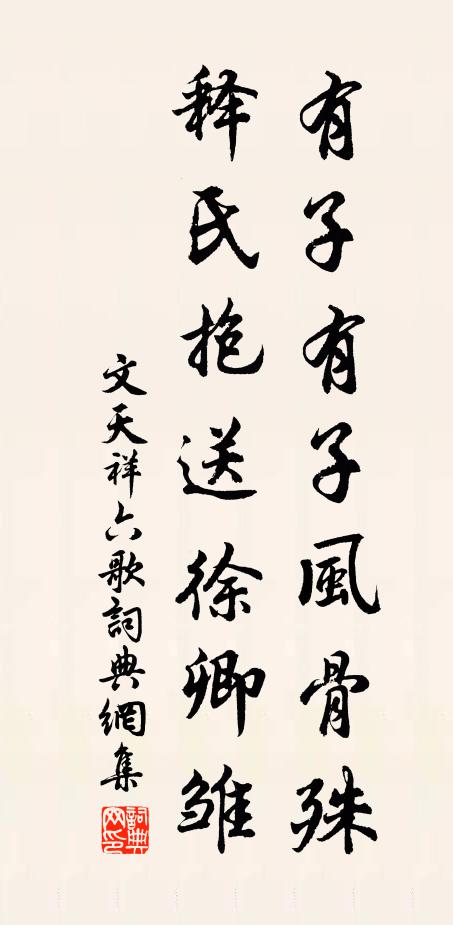 有子有子風骨殊
釋氏抱送徐卿雛
文天祥六歌詞典網集
詞典網印